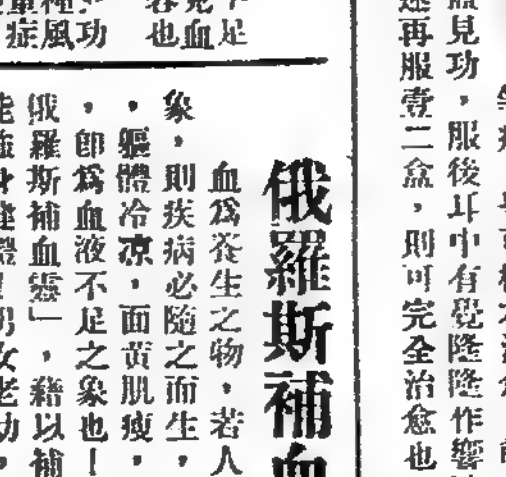 見功，服後耳中有覺隆隆作響
再服壹二盒，則可完全治愈也
足
血
也
功
風
症
俄羅斯補血
血爲養生之物，若人
象，則疾病必隨之而生，
，軀體冷凉，面黃肌瘦，
，卽爲血液不足之象也—
俄羅斯補血靈」，藉以補